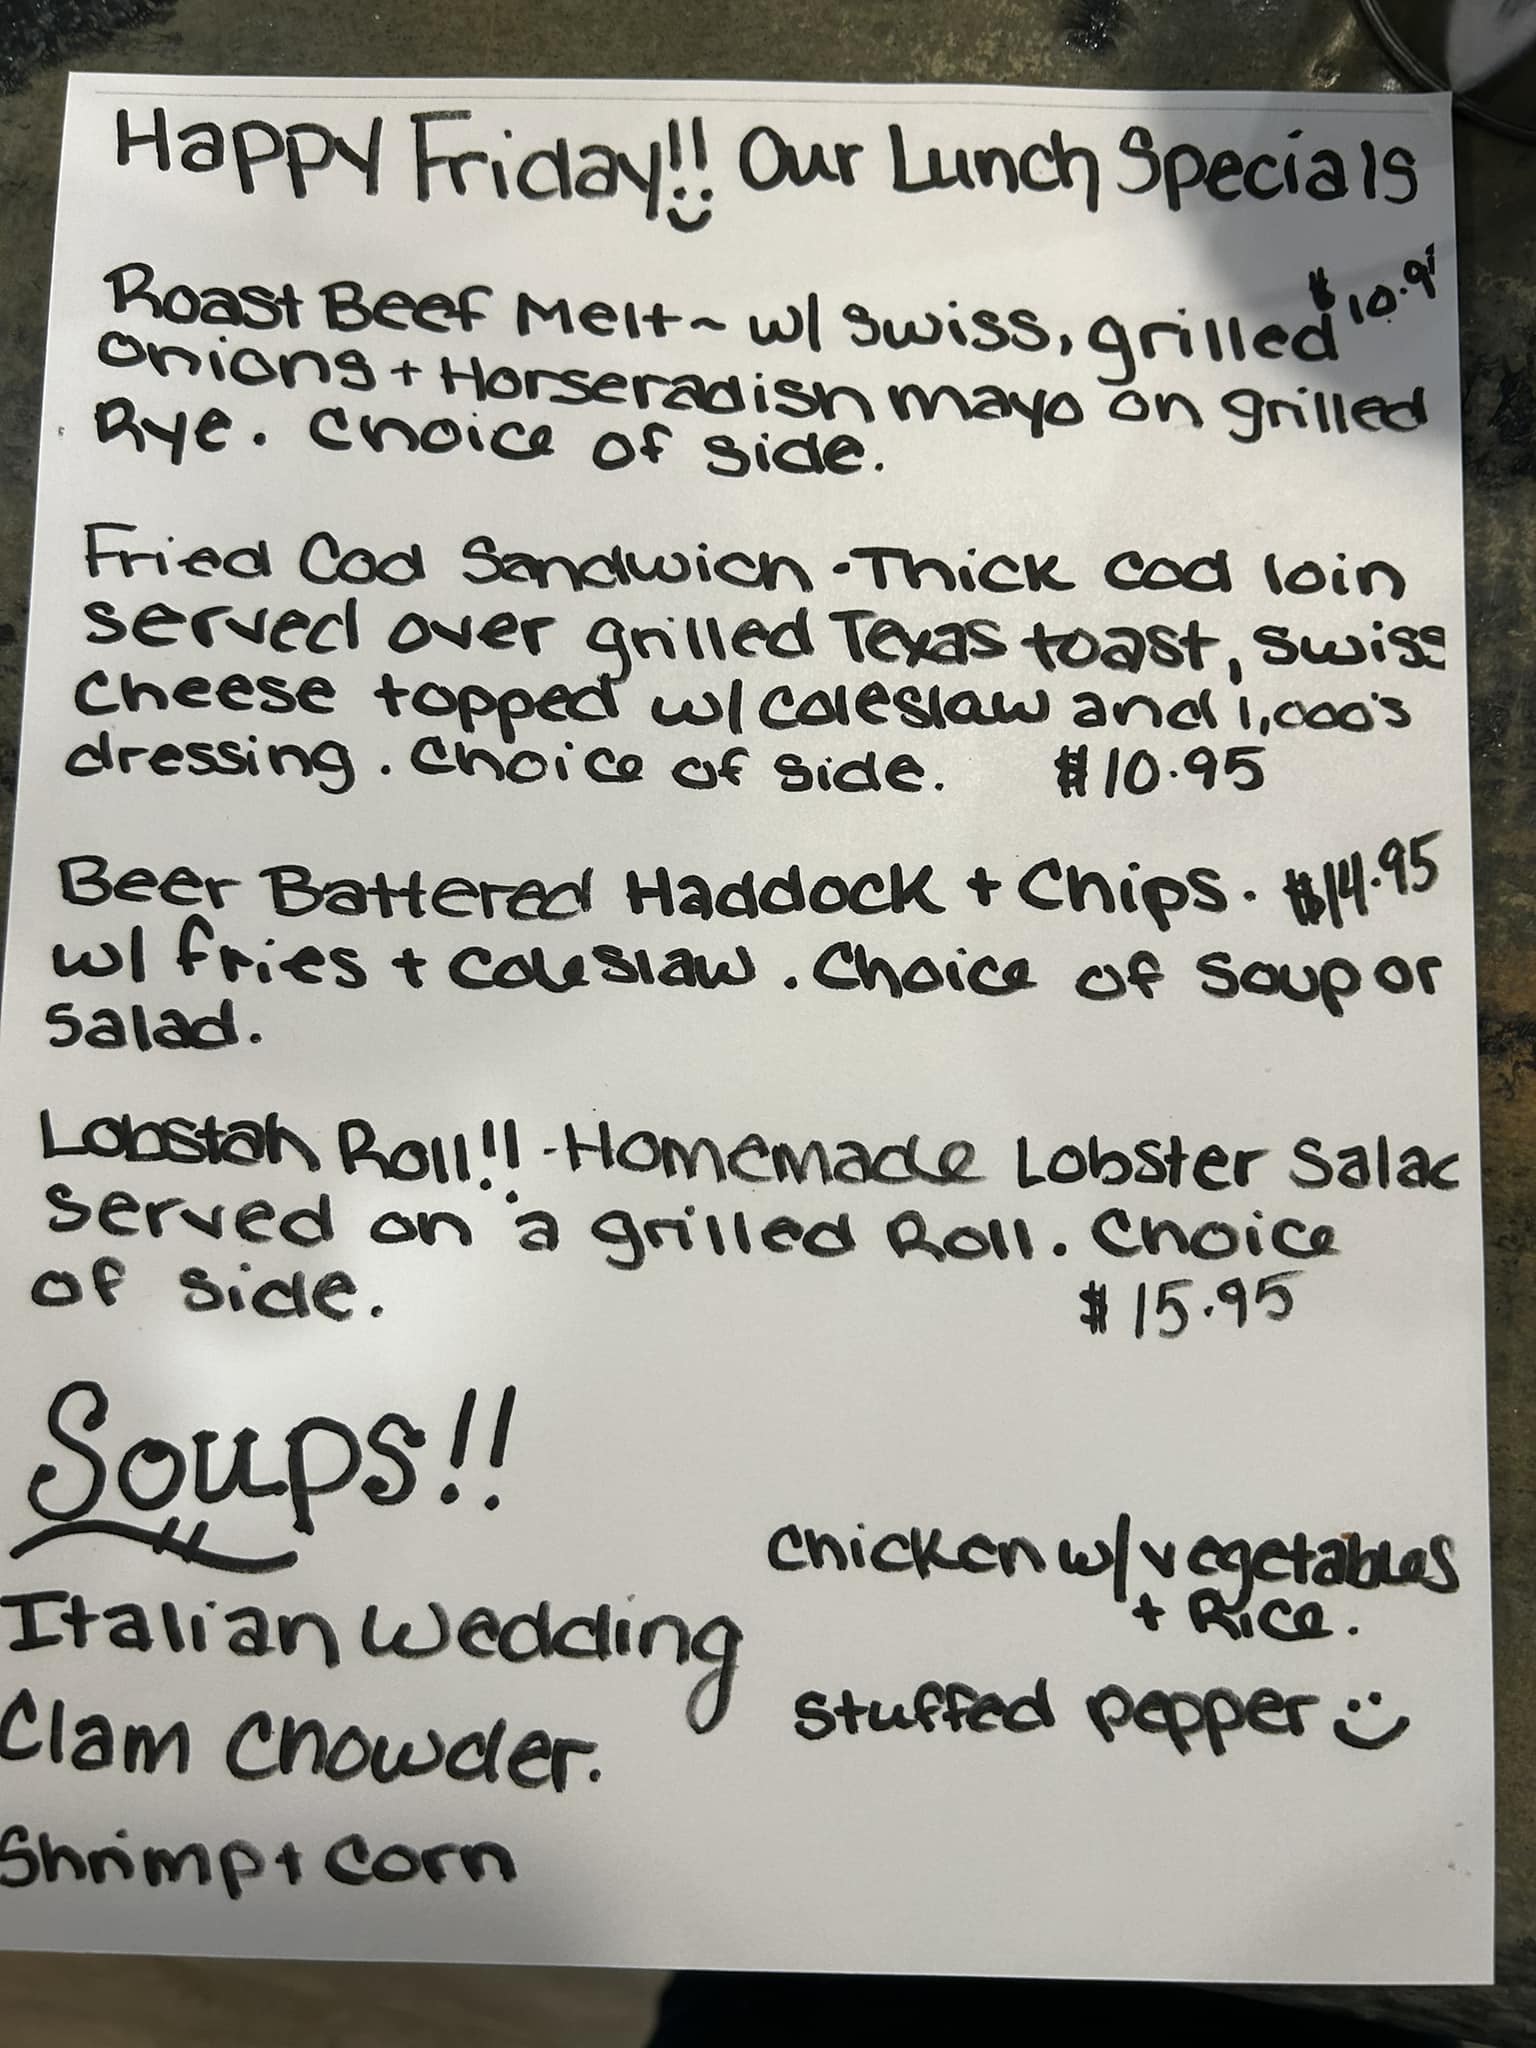 Happy Friday!! Our Lunch Specials
Roast Beef Melt~ w/ Swiss, grilled $10.9
onions + Horseradish mayo on grilled
Rye. Choice of side.
Fried Cod Sandwich - Thick cod loin
served over grilled Texas toast, Swiss
Cheese topped w/ coleslaw and 1,000's
dressing. Choice of side. $10.95
Beer Battered Haddock + Chips. $14.95
w/ fries + coleslaw. Choice of soup or
salad.
Lobstah Roll!! - Homemade Lobster Salad
served on a grilled Roll. Choice
of side. $15.95
Soups!!
Italian Wedding
Clam Chowder.
Shrimp + Corn
Chicken w/ vegetables
+ Rice.
Stuffed pepper